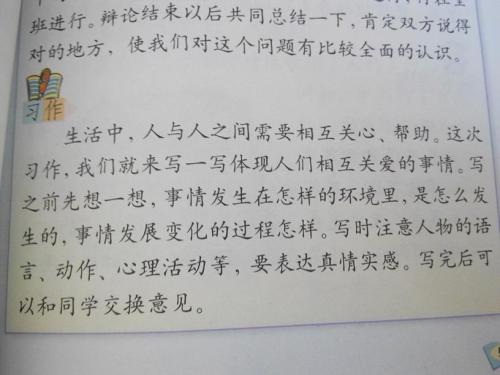 班进行。辩论结束以后共同总结一下，肯定双方说得
对的地方，使我们对这个问题有比较全面的认识。
习作
生活中，人与人之间需要相互关心、帮助。这次
习作，我们就来写一写体现人们相互关爱的事情。写
之前先想一想，事情发生在怎样的环境里，是怎么发
生的，事情发展变化的过程怎样。写时注意人物的语
言、动作、心理活动等，要表达真情实感。写完后可
以和同学交换意见。